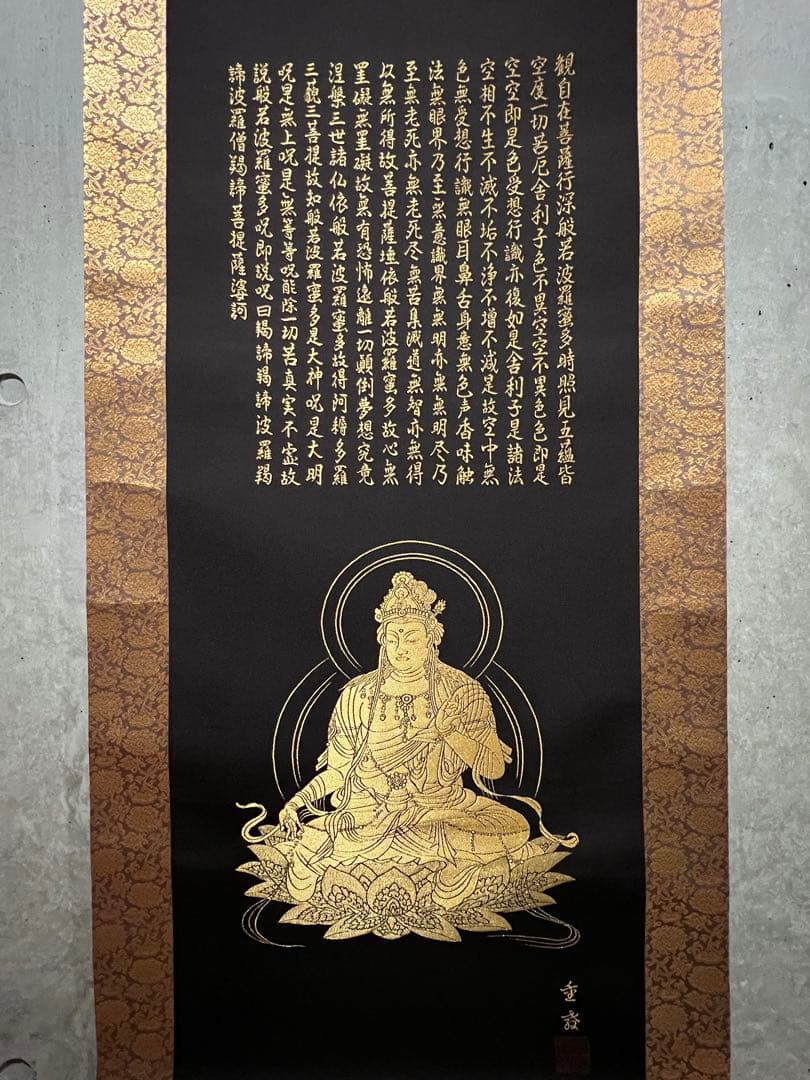 観自在菩薩行深般若波羅蜜多時照見五蘊皆
空度一切苦厄舎利子色不異空空不異色色即是
空空即是色受想行識亦復如是舎利子是諸法
空相不生不滅不垢不浄不増不減是故空中無
色無受想行識無眼耳鼻舌身意無色声香味触
法無眼界乃至無意識界無無明亦無無明尽乃
至無老死亦無老死尽無苦集滅道無智亦無得
以無所得故菩提薩埵依般若波羅蜜多故心無
罣礙無罣礙故無有恐怖遠離一切顛倒夢想究竟
涅槃三世諸仏依般若波羅蜜多故得阿耨多羅
三藐三菩提故知般若波羅蜜多是大神呪是大明
呪是無上呪是無等等呪能除一切苦真実不虚故
説般若波羅蜜多呪即説呪曰羯諦羯諦波羅羯
諦波羅僧羯諦菩提薩婆訶